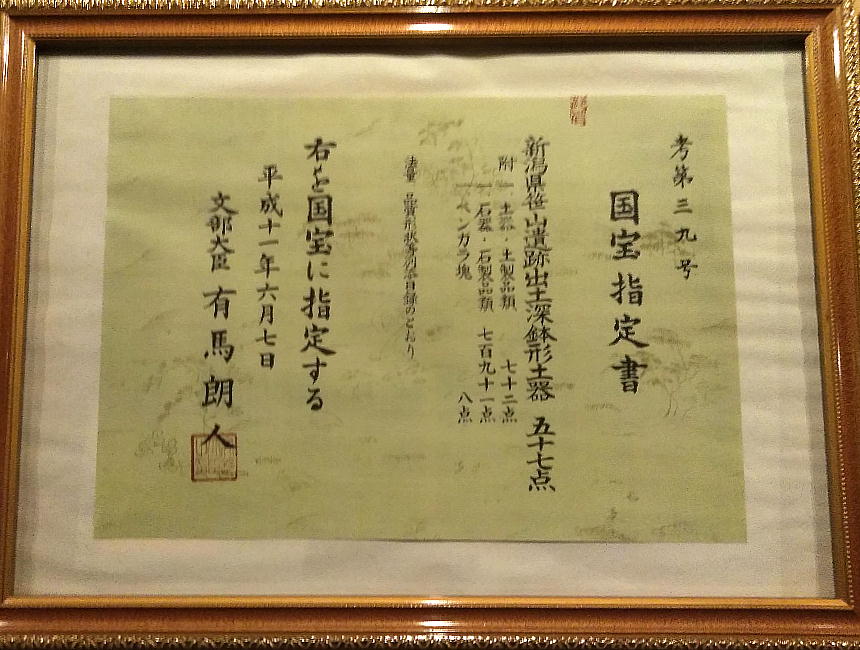 考第三九号
国宝指定書
新潟県笹山遺跡出土深鉢形土器 五十七点
附 一 土器・土製品類 七十二点
一 石器・石製品類 七百九十一点
一 ベンガラ塊 八点
法量、品質形状等別添目録のとおり
右を国宝に指定する
平成十一年六月七日
文部大臣 有馬朗人